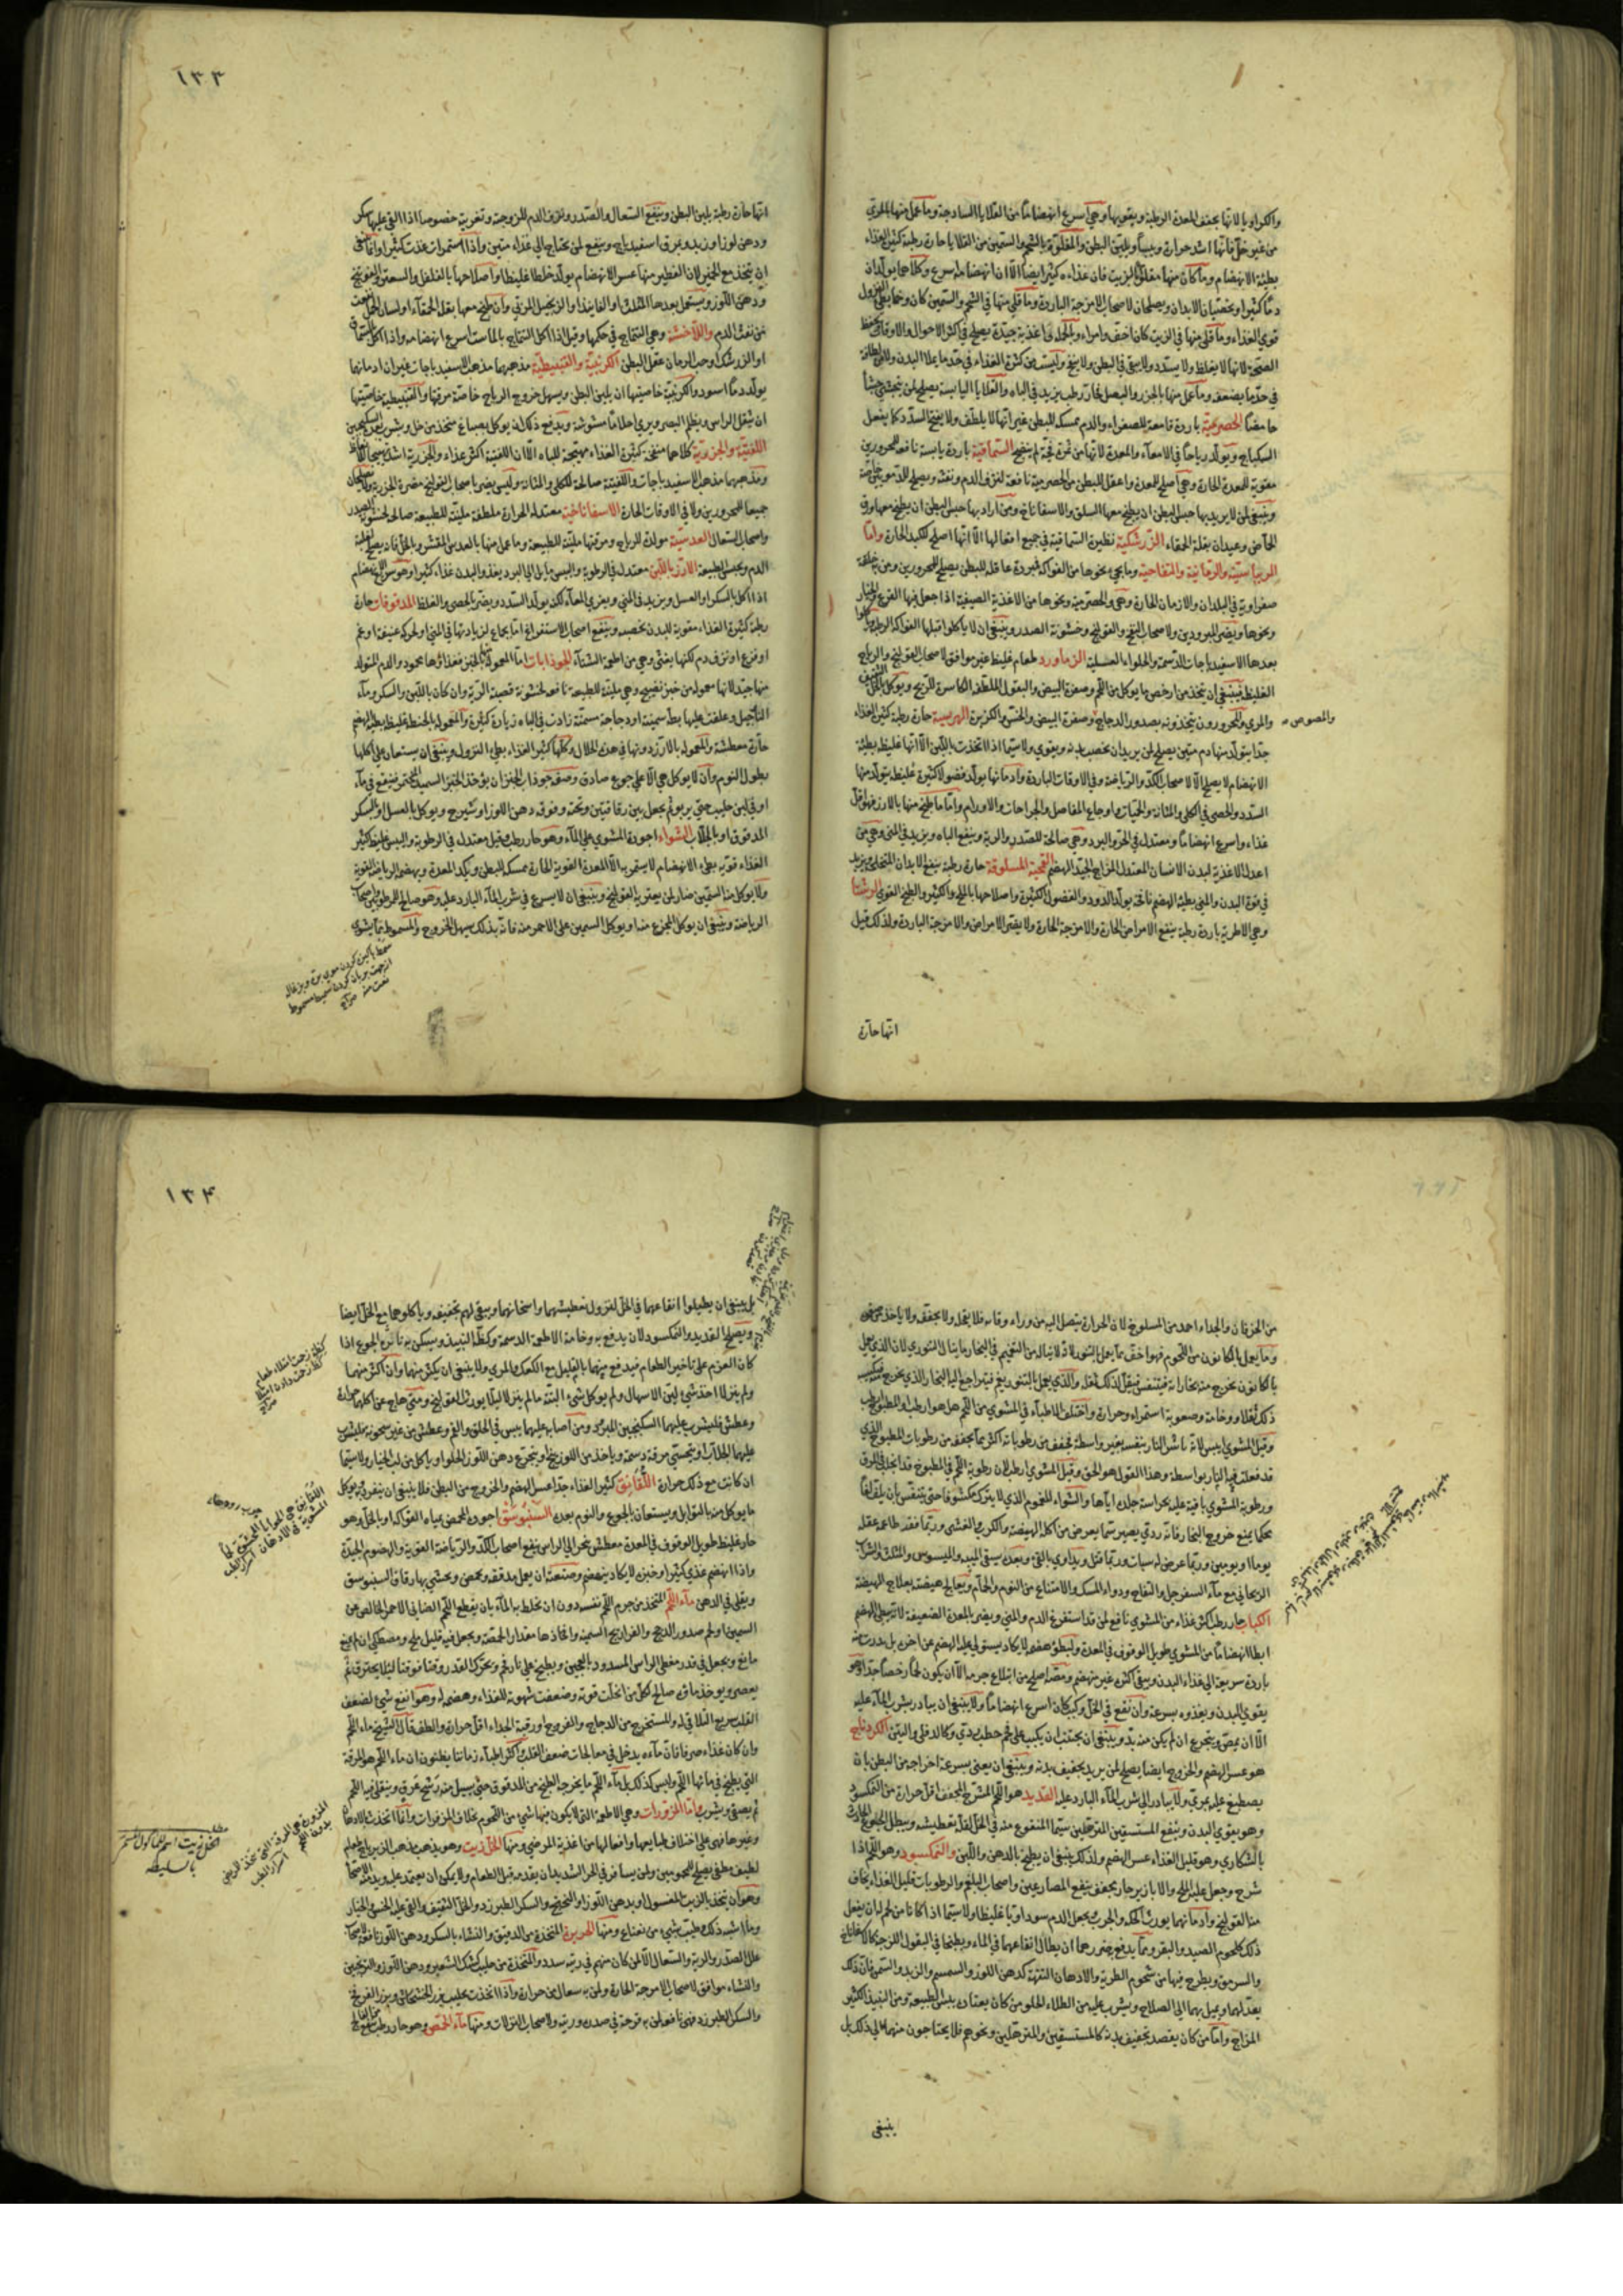 والكراويا لانها يجفف المعدة الرطبة ويقويها وهي اسرع انهضاما من القلايا الساذجة وما عمل منها بالمري
من غير خل فانها اشد حرارة ويبسا ويلين البطن والمقلوة بالشحم والسمين من القلايا حارة رطبة كثير الغذاء
بطيئة الانهضام وما كان منها مقلوا بالزيت فان غذاءه كثير ايضا الا ان انهضامه اسرع وكلاهما يولدان
دما كثيرا ويخصبان الابدان ويصلحان لاصحاب الامزجة الباردة وما قلي منها في الشحم والسمين كان وخما بطي النزول
قوي الغذاء وما قلي منها في الزيت كان اخف وامراء وبالجملة اغذية جيدة يصلح في اكثر الاحوال والاوقات يحفظ
الصحة لانها لا يغلظ ولا يسدد ولا يبقى في البطن ولا ينفخ وليست من كثرة الغذاء في حد ما يملا البدن ولا من لطافة
في حد ما يضعفه وما عمل منها بالجزر والبصل فحار رطب يزيد في الباه والقلايا اليابسة يصلح لمن يتجشى جشأ
حامضا الحصرمية باردة قامعة للصفراء والدم ممسكة للبطن غير انها لا يلطف ولا يفتح السدد كما يفعل
السكباج ويولد رياحا في الامعاء والمعدة لانها من ثمرة فجة لم ينضج السماقية باردة يابسة نافعة للمحرورين
مقوية للمعدة الحارة وهي اصلح للمعدة واعقل للبطن من الحصرمية نافعة لنزف الدم ونفثه ويصلح للدمويين خاصة
وينبغي لمن لا يريد بها حبس البطن ان يطبخ معها السلق والاسفاناخ ومن اراد بها حبس البطن ان يطبخ معها ورق
الحماض وعيدان بقلة الحمقاء الزرشكية نظيرة السماقية في جميع افعالها الا انها اصلح للكبد الحارة واما
الريباسية والرمانية والتفاحية وما يجي نحوها من الفواكه فمبردة عاقلة للبطن يصلح للمحرورين ومن به خلفة
صفراوية في البلدان والازمان الحارة وهي والحصرمية ونحوها من الاغذية الصيفية اذا جعل فيها القرع والخيار
ونحوها ويضر المبرودين ولاصحاب النفخ والقولنج وخشونة الصدر وينبغي ان لا ياكلوا قبلها الفواكه الرطبة وياكلوا
بعدها الاسفيدباجات الدسمة والحلواء العسلية الزماورد طعام غليظ غير موافق لاصحاب القولنج والرياح
الغليظة فينبغي ان يتخذ من ارخص ما يوكل من اللحم وصفرة البيض والبقول الملطفة الكاسرة للريح ويوكل بالخل الثقيف
والمري والمحرورون يتخذونه بصدور الدجاج وصفرة البيض والخس والكزبرة الهريسة حارة رطبة كثير الغذاء
جدا يتولد منها دم متين يصلح لمن يريد ان يخصب بدنه ويقوي ولا سيما اذا اتخذت باللبن الا انها غليظة بطيئة
الانهضام لا يصلح الا لاصحاب الكد والرياضة وفي الاوقات الباردة وادمانها يولد فضولا كثيرة غليظة يتولد منها
السدد والحصى في الكلى والمثانة والحيات واوجاع المفاصل والجراحات والاورام واما ما طبخ منها بالارز فهو اقل
غذاء واسرع انهضاما ومعتدل في الحر والبرد وهي صالحة للصدر والرية وينفع الباه ويزيد في المني وهي من
اعدل الاغذية لبدن الانسان المعتدل المزاج الجيد الهضم القمحية المسلوقة حارة رطبة ينفع الابدان المتخلخلة ويزيد
في قوة البدن والمني بطيئة الهضم نافخة يولد الدود والفضول الكثيرة واصلاحها بالملح الكثير والطبخ القوي الرشتا
وهي الاطرية باردة رطبة ينفع الامراض الحارة والامزجة الحارة ولا يضر الامراض والامزجة الباردة ولذلك قيل
والمصوص
انها حارة
١٣٣
انها حارة رطبة يلين البطن وينفع السعال والصدر ونزف الدم للزوجة وتغرية خصوصا اذا القي عليها سكر
ودهن لوز او زبد ومرق اسفيدباج وينفع لمن يحتاج الى غذاء متين واذا استمرات غذت كثيرا وانما ينبغي
ان يتخذ مع الخمير لان الفطير منها عسر الانهضام يولد خلطا غليظا واصلاحها بالفلفل والسعتر والفوتنج
ودهن اللوز ويستعمل بعدها المثلث او الفانيذ او الزنجبيل المربى وان طبخ معها بقلة الحمقاء او لسان الحمل نفعت
من نفث الدم واللاخشة وهي التتماج في حكمها وقيل اذا اكل التتماج بالماست اسرع انهضامه واذا اكل بالسماق
او الزرشك او حب الرمان عقل البطن الكرنبية والقنبيطية مذهبهما مذهب الاسفيدباجات غير ان ادمانهما
يولد دما اسود والكرنبية خاصيتها ان يلين البطن ويسهل خروج الرياح خاصة مرقتها والقنبيطية خاصيتها
ان يثقل الراس ويظلم البصر ويري احلاما مشوشة ويدفع ذلك ان يوكل بصباغ متخذ من خل ويشرب بعده السكنجبين
اللفتية والجزرية كلاهما منفخة كثيرة الغذاء مهيجة للباه الا ان اللفتية اكثر غذاء والجزرية اشد تهييجا للانعاظ
ومذهبهما مذهب الاسفيدباجات واللفتية صالحة للكلى والمثانة وليس يضر باصحاب القولنج مضرة الجزرية ولا يصلحان
جميعا للمحرورين ولا في الاوقات الحارة الاسفاناخية معتدلة الحرارة ملطفة ملينة للطبيعة صالحة لخشونة الصدر
واصحاب السعال العدسية مولدة للرياح ومرقتها ملينة للطبيعة وما عمل منها بالعدس المقشر وبالخل فانه يصلح لغلبة
الدم ويحبس الطبيعة الارز باللبن معتدل في الرطوبة واليبس مايل الى البرد يغذو البدن غذاء كثيرا وهو سريع الانهضام
اذا اكل بالسكر او العسل ويزيد في المني ويغري المعاء لكنه يولد السدد ويضر بالحصى والغلظ المدقوقات حارة
رطبة كثيرة الغذاء مقوية للبدن مخصبه وينفع اصحاب الاستفراغ اما بجماع لزيادتها في المني او لحركة عنيفة او غم
او فزع او نزف دم لكنها يغثي وهي من اطعمة الشتاء الجوذابات اما المعمولة بالخبز فغذاؤها محمود والدم المتولد
منها جيد لانها معمولة من خبز نضيج وهي ملينة للطبيعة نافعة لخشونة قصبة الرية وان كان باللبن والسكر وماء
النارجيل وعلقت عليها بطة سمينة او دجاجة مسمنة زادت في الباه زيادة كثيرة والمعمولة بالحنطة غليظة بطيئة الهضم
حارة معطشة والمعمولة بالارز دونها في هذه الخلال وكلها كثير الغذاء بطي النزول وينبغي ان يستعان على اكلها
بطول النوم وان لا يوكل هي الا على جوع صادق وصفة جوذاب الخبز ان يؤخذ الخبز السميد المختمر فينقع في ماء
او في لبن حليب حتى يربو ثم يجعل بين رقاقتين وتحته وفوقه دهن اللوز او شيرج ويوكل بالعسل او بالسكر
المدقوق او بالجلاب الشواء اجوده المشوي على الماء وهو حار رطب وقيل معتدل في الرطوبة واليبس غليظ كثير
الغذاء قويه بطي الانهضام لا يستمريه الا المعدة القوية الحارة ممسك للبطن ويكد المعدة ويهضمه الرياضة القوية
ولا يوكل منه السمين ضار لمن يعتريه القولنج وينبغي ان لا يسرع في شرب الماء البارد عليه وهو صالح للمرطوبين واصحاب
الرياضة وينبغي ان يوكل المجزع منه او يوكل السمين على الاحمر منه فانه بذلك يسهل الخروج والمسموط مما يشوى
سمط پاكين كردن موي بره وبزغاله
از جهت بريان كردن شميط مسموط
نعت منه صراح
من الخرفان والجداء احمد من المسلوخ لان الحرارة يتصل اليه من وراء وقاية فلا يقحله ولا يجففه ولا ياخذ من قوته
وما يعمل بالكانون من اللحوم فهو اخف مما يعمل بالتنور لانه لا يناله من التغيم في البخار ما ينال التنوري لان الذي يعمل
بالكانون يخرج منه بخاراته فيتنفس فيقل لذلك ثقله والذي يعمل بالتنور يغم فيتراجع اليه البخار الذي يخرج منه فيكسبه
ذلك ثقلا ووخامة وصعوبة استمراء وحرارة واختلف الاطباء في المشوي من اللحم هل هو ارطب او المطبوخ ارطب
وقيل المشوي ايبس لانه باشر النار بنفسه بغير واسطة فجفف من رطوباته اكثر مما يجفف من رطوبات المطبوخ الذي
قد فعلت فيه النار بواسطة وهذا القول هو الحق وقيل المشوي ارطب لان رطوبة اللحم في المطبوخ قد انجذبت في المرق
ورطوبة المشوي باقية عليه بحراسة جلده اياها والشواء للمغموم الذي لا يترك مكشوفا حتى يتنفس بان يلف لفا
محكما يمنع خروج البخار فانه ردي يصير سما يعرض من اكله الهيضة والكرب والغشي وربما فقد طاعمه عقله
يوما او يومين وربما عرض له سبات وربما قتل ويداوي بالقي وبعده يسقى الميبه والميسوس والمثلث والشراب
الريحاني مع ماء السفرجل والتفاح ودواء المسك والامتناع من النوم والحمام ويعالج هيضته بعلاج الهيضة
الكباب حار رطب اكثر غذاء من المشوي نافع لمن قد استفرغ الدم والمني ويضر بالمعدة الضعيفة لانه بطي الهضم
ابطا انهضاما من المشوي طويل الوقوف في المعدة ولبطؤ هضمه لا يكاد يستولي عليه الهضم عن اخره بل يندرت منه
باردة سريعة الى غذاء البدن ويبقى اكثره غير منهضم ومصه اصلح من ابتلاع جرمه الا ان يكون لحما رخصا جدا وهو
يقوي البدن ويغذوه بسرعة وان نقع في الخل وكبب كان اسرع انهضاما ولا ينبغي ان يبادر بشرب الماء عليه
الا ان يمص ويتجرع ان لم يكن منه بد وينبغي ان يجتنب ان يكبب على فحم حطب ردي كالدفلى والتين الكردناج
هو عسر الهضم والخروج ايضا يصلح لمن يريد تجفيف بدنه وينبغي ان يعنى بسرعة اخراجه من البطن بان
يصطبغ عليه بمري ولا يبادر الى شرب الماء البارد عليه القديد هو اللحم المشرح المجفف اقل حرارة من النمكسود
وهو يقوي البدن وينفع المستسقين المترهلين سيما المنقوع منه في الخل لقلة تعطيشه ويبطل الجوع الحادث
بالسكاري وهو قليل الغذاء عسر الهضم ولذلك ينبغي ان يطبخ بالدهن واللبن والنمكسود وهو اللحم اذا
شرح وجعل عليه الملح والابازير حار يجفف ينفع المصارعين واصحاب البلغم والرطوبات قليل الغذاء يخاف
منه القولنج وادمانهما يورث الحكة والجرب ويجعل الدم سوداويا غليظا ولا سيما اذا كانا من لحم لا ان يفعل
ذلك كلحوم الصيد والبقر ومما يدفع ضررهما ان يطال انقاعهما في الماء ويطبخا في البقول اللزجة كالاسفاناخ
والسرمق ويطرح فيها من شحوم الطرية والادهان التفهة كدهن اللوز والسمسم والزبد والسمن فان ذلك
يعدلهما ويميل بهما الى الصلاح ويشرب عليه من الطلاء الحلو من كان يعتاده يبس الطبيعة ومن النبيذ الكثير
المزاج واما من كان يقصد تجفيف بدنه كالمستسقين والمترهلين ونحوهم فلا يحتاجون منهما الى ذلك بل
ينبغي
١٣٤
بل ينبغي ان يطيلوا انقاعهما في الخل لنزول تعطيشهما واسخانهما ويبقى لهم تجفيفه وياكلوهما مع الخل ايضا
ويصلح القديد والنمكسود لان يدفع به وخامة الاطعمة الدسمة وكظة النبيذ ويسكن به نائرة الجوع اذا
كان العزم على تاخير الطعام فيدفع منهما بالقليل مع الكعك والمري ولا ينبغي ان يكثر منهما وان اكثر منهما
ولم ينزلا اخذ شئ يلين الاسهال ولم يوكل شئ البتة ما لم ينزلا ليلا يورثا القولنج ومتى هاج عن اكلهما حرارة
وعطش فليشرب عليهما السكنجبين المبرد ومن اصابه عليهما يبس في الحلق والفم وعطش من غير سخونة فليشرب
عليهما الجلاب او يتحسى مرقة دسمة وياخذ من اللوزينج او يتجرع دهن اللوز الحلو او ياكل من لب الخيار ولا سيما
ان كانت مع ذلك حرارة اللقانق كثير الغذاء جدا عسر الهضم والخروج من البطن فلا ينبغي ان ينفرد به يوكل
ما يوكل منه بالتوابل ويستعان بالجوع والنوم بعده السنبوسق اجوده المحمض بمياه الفواكه او بالخل وهو
حار غليظ طويل الوقوف في المعدة معطش منجر الى الراس ينفع اصحاب الكد والرياضة القوية والهضوم الجيدة
واذا انهضم غذى كثيرا وخبزه لا يكاد ينهضم وصنعته ان يعمل مدققة ويحمض ويحشى بها رقاق السنبوسق
ويقلى في الدهن ماء اللحم المتخذ من جرم اللحم نفسه دون ان يخلط به الماء بان يقطع اللحم الضاني الاحمر الخالص من
السمين او لحم صدور الدجاج والفراريج السمينة والخاذها مقدار الحمصة ويجعل فيه قليل ملح ومصطكي ان لم يمنع
مانع ويجعل في قدر مغطى الراس المسدود بالعجين ويطبخ على نار فحم ويحرك القدر وقتا فوقتا ليلا يحترق ثم
يعصر ويوخذ ماؤه صالح لكل من انحلت قوته وضعفت شهوته للغذاء وهضمه له وهو انفع شئ لضعف
القلب سريع التلافي له والمستخرج من الدجاج والفروج اورقبة الجداء اقل حرارة والطف قال الشيخ ماء اللحم
وان كان غذاء صرفا فان ماءه يدخل في معالجات ضعف القلب واكثر اطباء زماننا يظنون ان ماء اللحم هو المرقة
التي يطبخ في مائها اللحم وليس كذلك بل ماء اللحم ما يخرجه الطبخ من المدقوق حتى يسيل منه رشح عرق ويبقى فيه اللحم
ثم يصفى ويشرب واما المزورات وهي الاطعمة التي لا يكون منها شئ من اللحوم بخلاف المزفرات وانما اتخذت بالادهان
وغيرها فهي على اختلاف طبايعها وافعالها من اغذية المرضى ومنها الخل زيت وهو يذهب مذهب الزيرباج طعام
لطيف مطفي يصلح للمحمومين ولمن يسافر في الحر الشديد ان يقدمه قبل الطعام ولا يمكن ان يعتمد عليه وحده الاصحاء
وهو ان يتخذ بالزيت المغسول او بدهن اللوز او الخبز والسكر الطبرزد والخل الثقيف والقي عليه الخس والخيار
وما اشبه ذلك وطيب بشئ من نعناع ومنها الحريرة المتخذة من الدقيق والنشاء بالسكر ودهن اللوز نافعة لاصحاب
علل الصدر والرية والسعال الا لمن كان منهم في ريته سدد والمتخذة من حليب كشك الشعير ودهن اللوز والترنجبين
والنشاء موافق لاصحاب الامزجة الحارة ولمن به سعال من حرارة واذا اتخذت بحليب بزر الخشخاش وبزر القرع
والسكر الطبرزد فهي نافعة لمن به قرحة في صدره وريته ولاصحاب النزلات ومنها ماء الحمص وهو حار رطب ينفع من الفالج